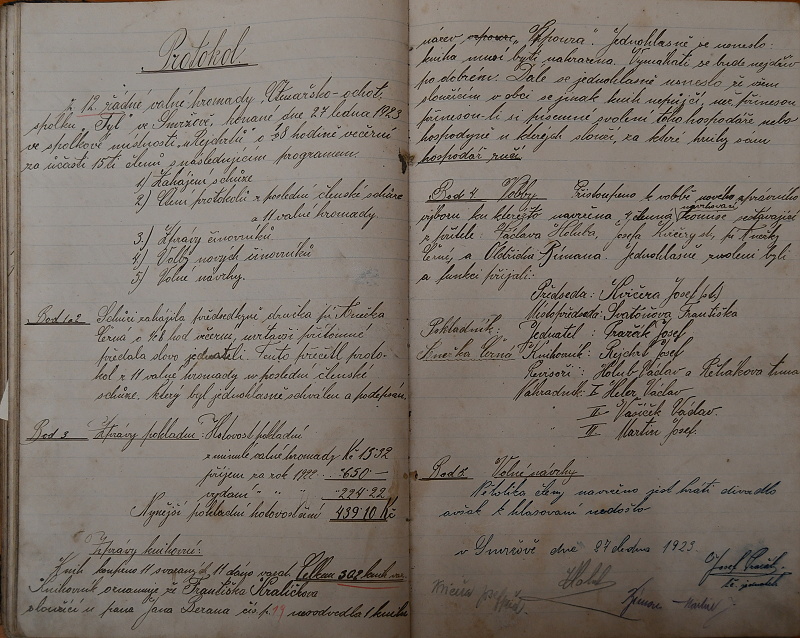 Protokol
z 12. řádné valné hromady, Čtenářsko-ochot.
spolku "Tyl" ve Smržově, konané dne 27 ledna 1923
ve spolkové místnosti "u Rejchrtů" o ½8 hodině večerní
za účasti 15.ti členů s následujícím programem.
1) Zahájení schůze
2) Čtení protokolů z poslední členské schůze
a 11 valné hromady.
3.) Zprávy činovníků
4) Volby nových činovníků
5) Volné návrhy.
Bod 1 a 2 Schůzi zahájila předsedkyně družka př. Anežka
Černá o ½8 hod večerní, uvítavši přítomné
předala slovo jednateli. Tento přečetl proto-
kol z 11 valné hromady a poslední členské
schůze, který byl jednohlasně schválen a podepsán.
Bod 3 Zprávy pokladní: Hotovost pokladní
z minulé valné hromady Kč 15·32
příjem za rok 1922 ... "650·—
vydání " " " "224·22
Nynější pokladní hotovost činí 439·10 Kč
Zprávy knihovní:
Knih koupeno 11 svazků, 11 dáno vázati. Celkem 302 knih
Knihovník oznamuje že Františka Králíčkova
sloužící u pana Jana Berana čís. p. 19 neodvedla 1 knihu
název "Upoura". Jednohlasně se usneslo:
kniha musí býti nahražena. Vymáhati se bude nejdřív
po dobrém. Dále se jednohlasně usneslo že všem
sloužícím v obci se jinak knih nepůjčí, než
přinesou-li si písemné svolení toho hospodáře nebo
hospodyně u kterých slouží, za které knihy sám
hospodář ručí.
Bod 4 Volby Přistoupeno k volbě nového správního
výboru, ku kterýžto navržena 4 členná navrhovací komise sestávající
z přítele: Václava Holuba, Josefa Kvičery st., př. Anežky
Černé, a Oldřicha Římana. Jednohlasně zvoleni byli
a funkci přijali:
Předseda: Kvičera Josef (st)
Místopředseda: Svatoňova Františka
Pokladník: Jednatel: Frazák Josef
Anežka Černá Knihovník: Rejchrt Josef
Revisoři: Holub Václav a Řeháková Anna
Náhradník: I Heler Václav
" II Vašíček Václav.
" III Martin Josef.
Bod 5 Volné návrhy
Několika členy navrženo jest hráti divadlo
avšak k hlasování nedošlo
v Smržově dne 27 ledna 1923.
Kvičera Josef
Holub